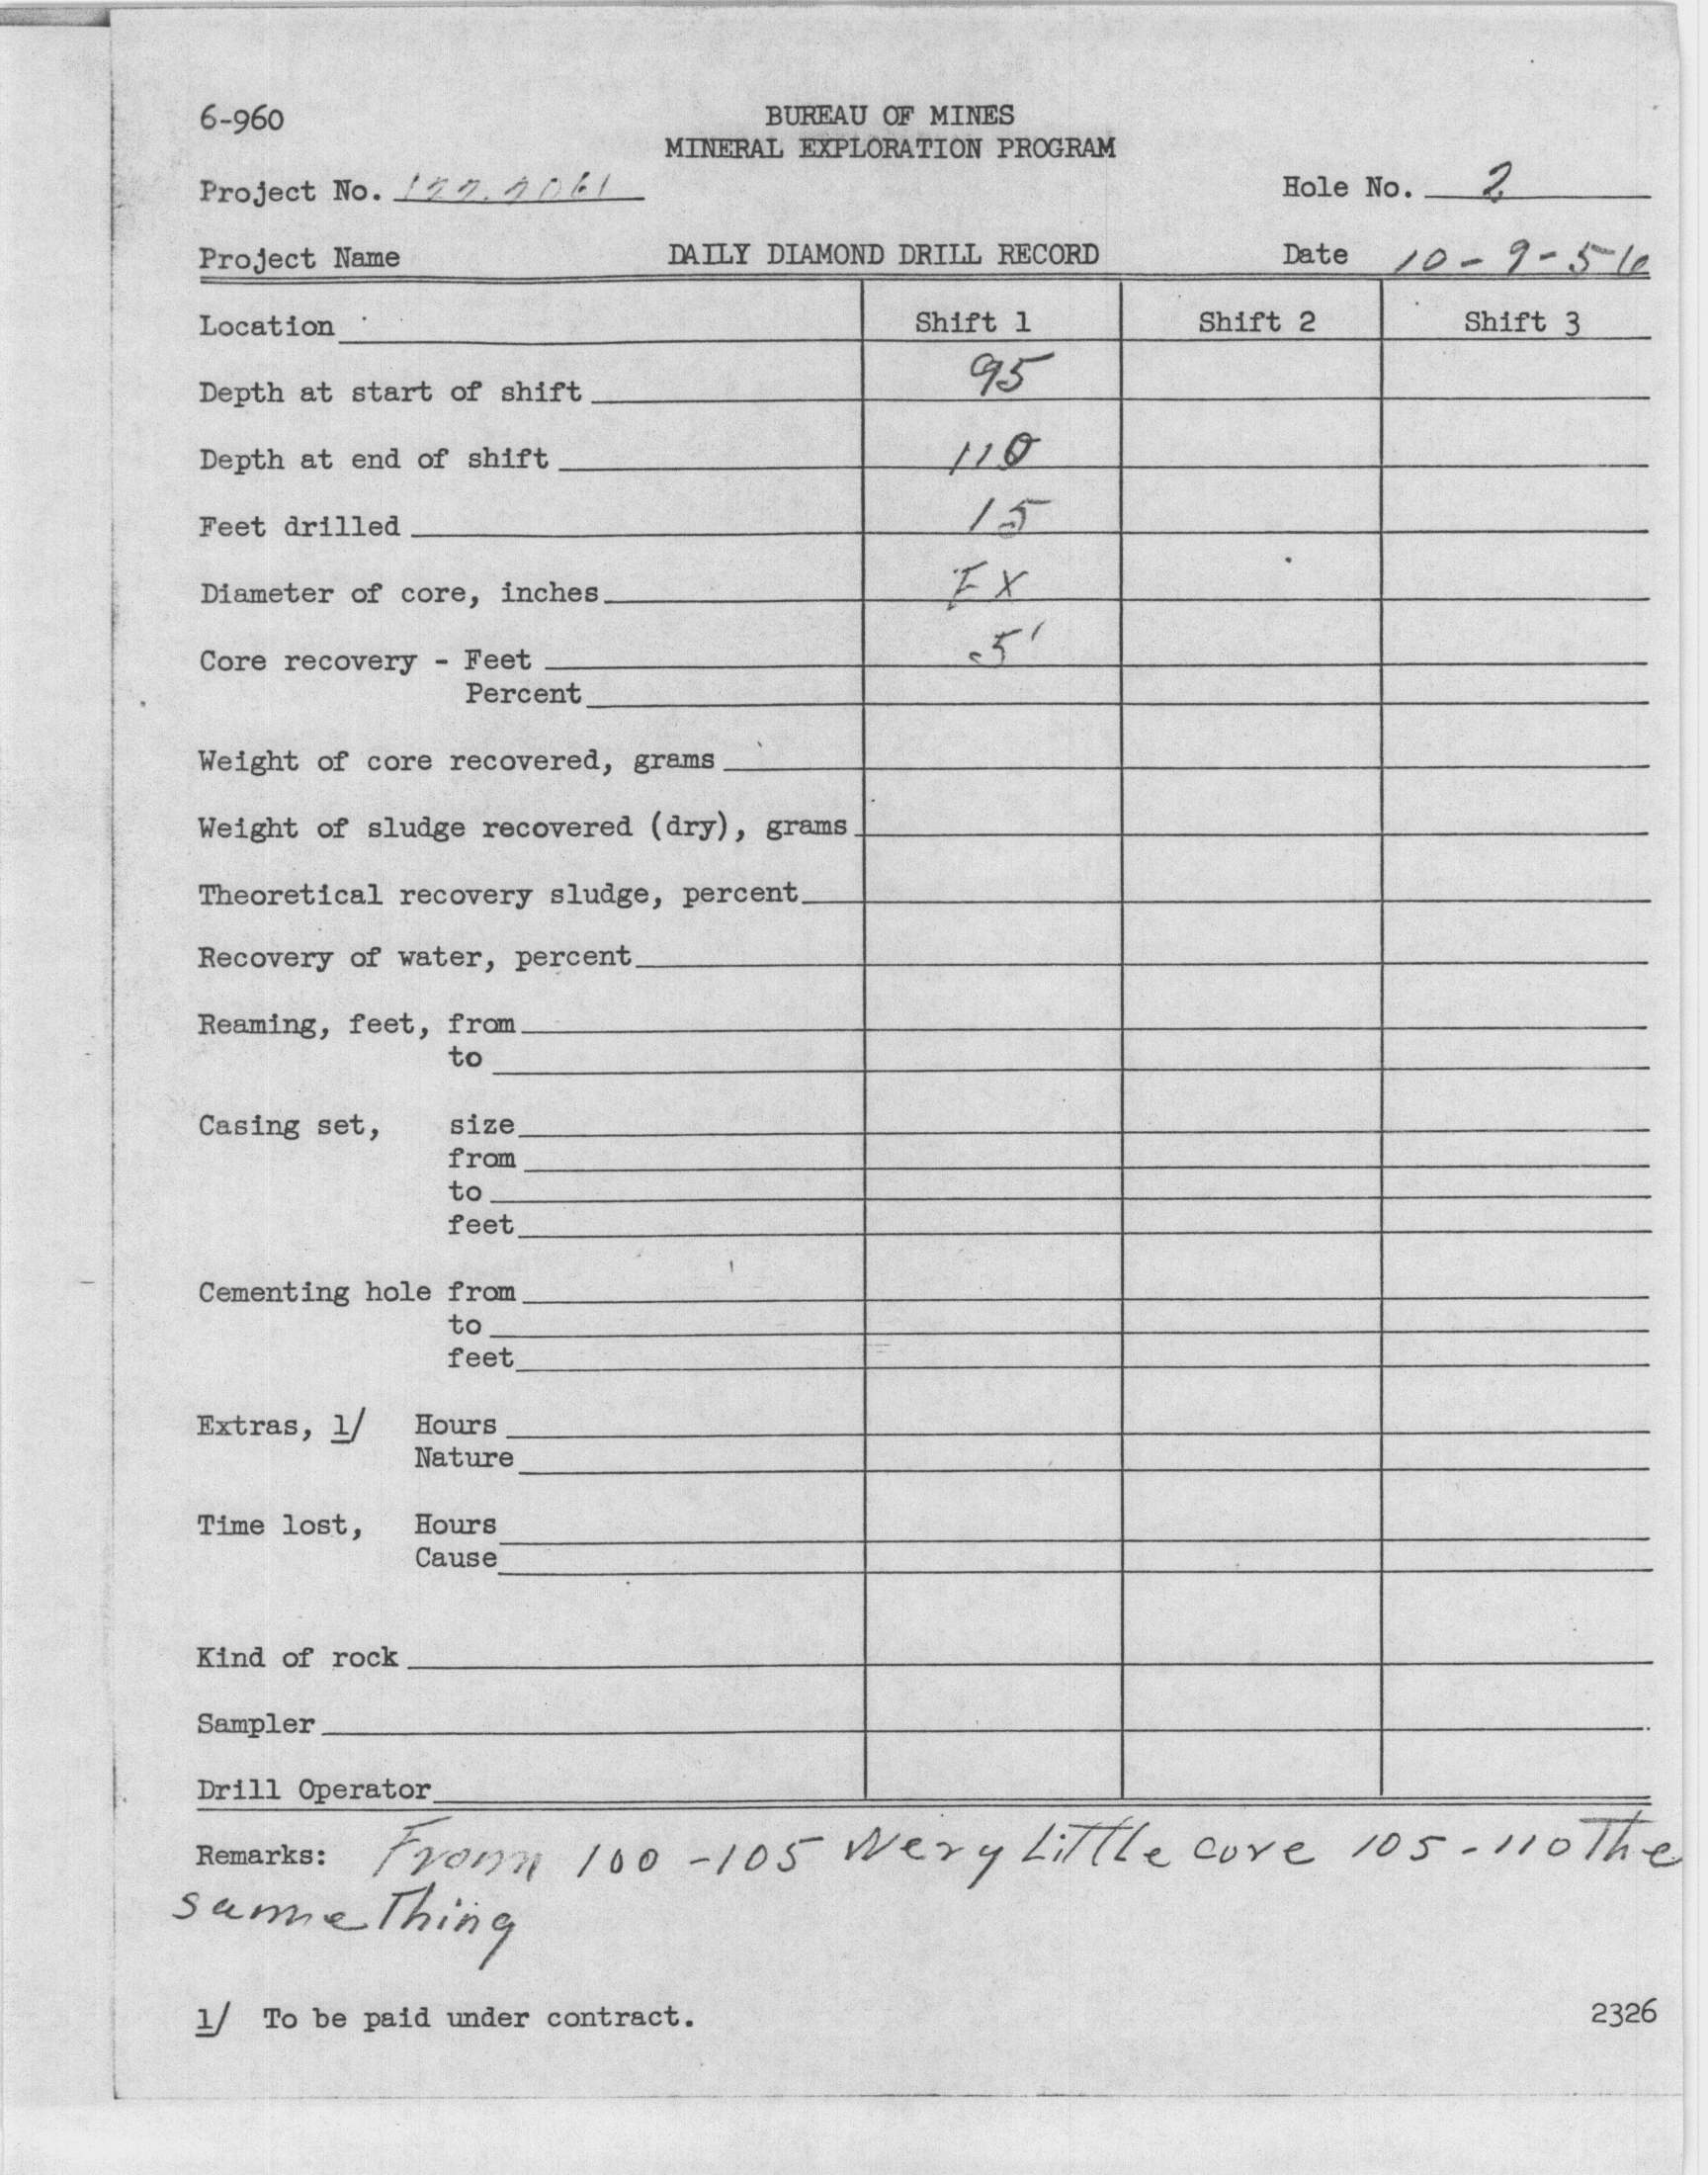 6-960
BUREAU OF MINES
MINERAL EXPLORATION PROGRAM
Project No.
Hole No. 2
Project Name
DAILY DIAMOND DRILL RECORD
Date 10-9-56
Location Shift 1 Shift 2 Shift 3
Depth at start of shift 95
Depth at end of shift 110
Feet drilled 15
Diameter of core, inches EX
Core recovery - Feet 5'
Percent
Weight of core recovered, grams
Weight of sludge recovered (dry), grams
Theoretical recovery sludge, percent
Recovery of water, percent
Reaming, feet, from
to
Casing set, size
from
to
feet
Cementing hole from
to
feet
Extras, 1/ Hours
Nature
Time lost, Hours
Cause
Kind of rock
Sampler
Drill Operator
Remarks: From 100-105 Very Little core 105-110 The
same Thing
1/ To be paid under contract.
2326